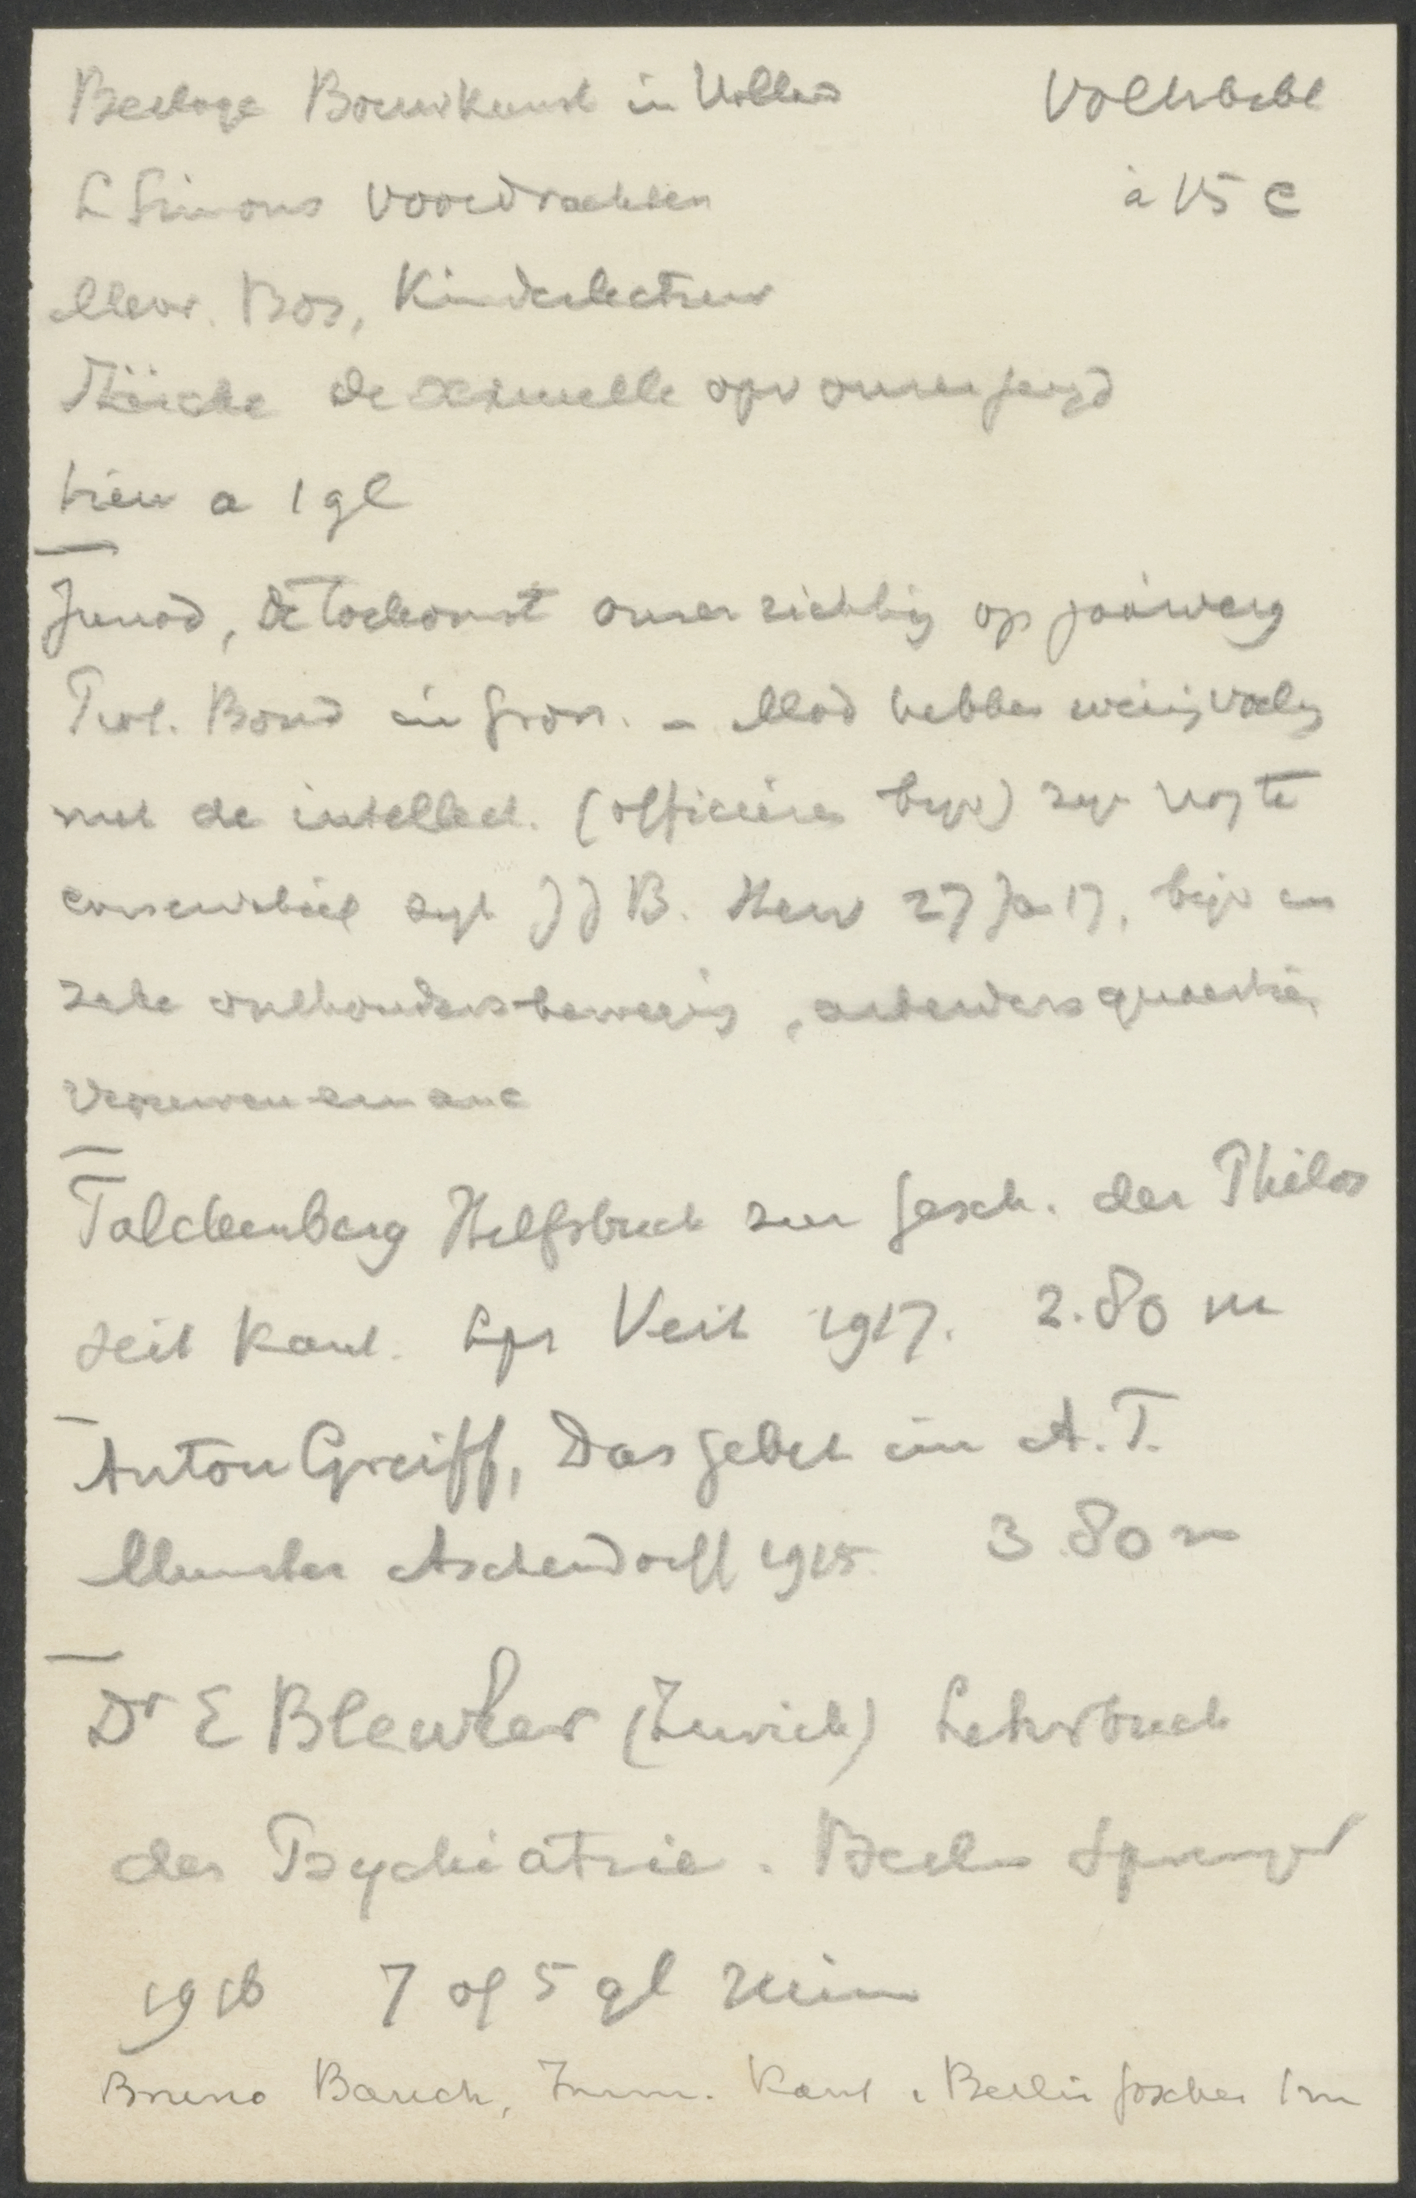 Berlage Bouwkunst in Holland Volksbibl
L Simons Voordrachten à 15 c
Mevr. Bos, Kinderlectuur
De sexueele opv onzer jeugd
hierv a 1 gl
Junod, De Toekomst onzer richting op jaarverg
Prot. Bond in Gron. - Mod hebben weinig voeling
met de intellect. (officieren bijv) zijn nog te
conservatief zegt J J B. Herv 27 Jan 17, bijv en
zake onthoudersbeweging, arbeidersquaestie
vrouwenemanc
Falckenberg Hilfsbuch zur Gesch. der Philos
seit Kant. Lpz Veit 1917. 2.80 m
Anton Greiff, Das Gebet im A.T.
Munster Aschendorff 1915. 3.80 m
Dr E Bleuler (Zurich) Lehrbuch
der Psychiatrie. Berlin Springer
1916 7 of 5 gl
Bruno Bauch, Imm. Kant. Berlin Göschen 1 m